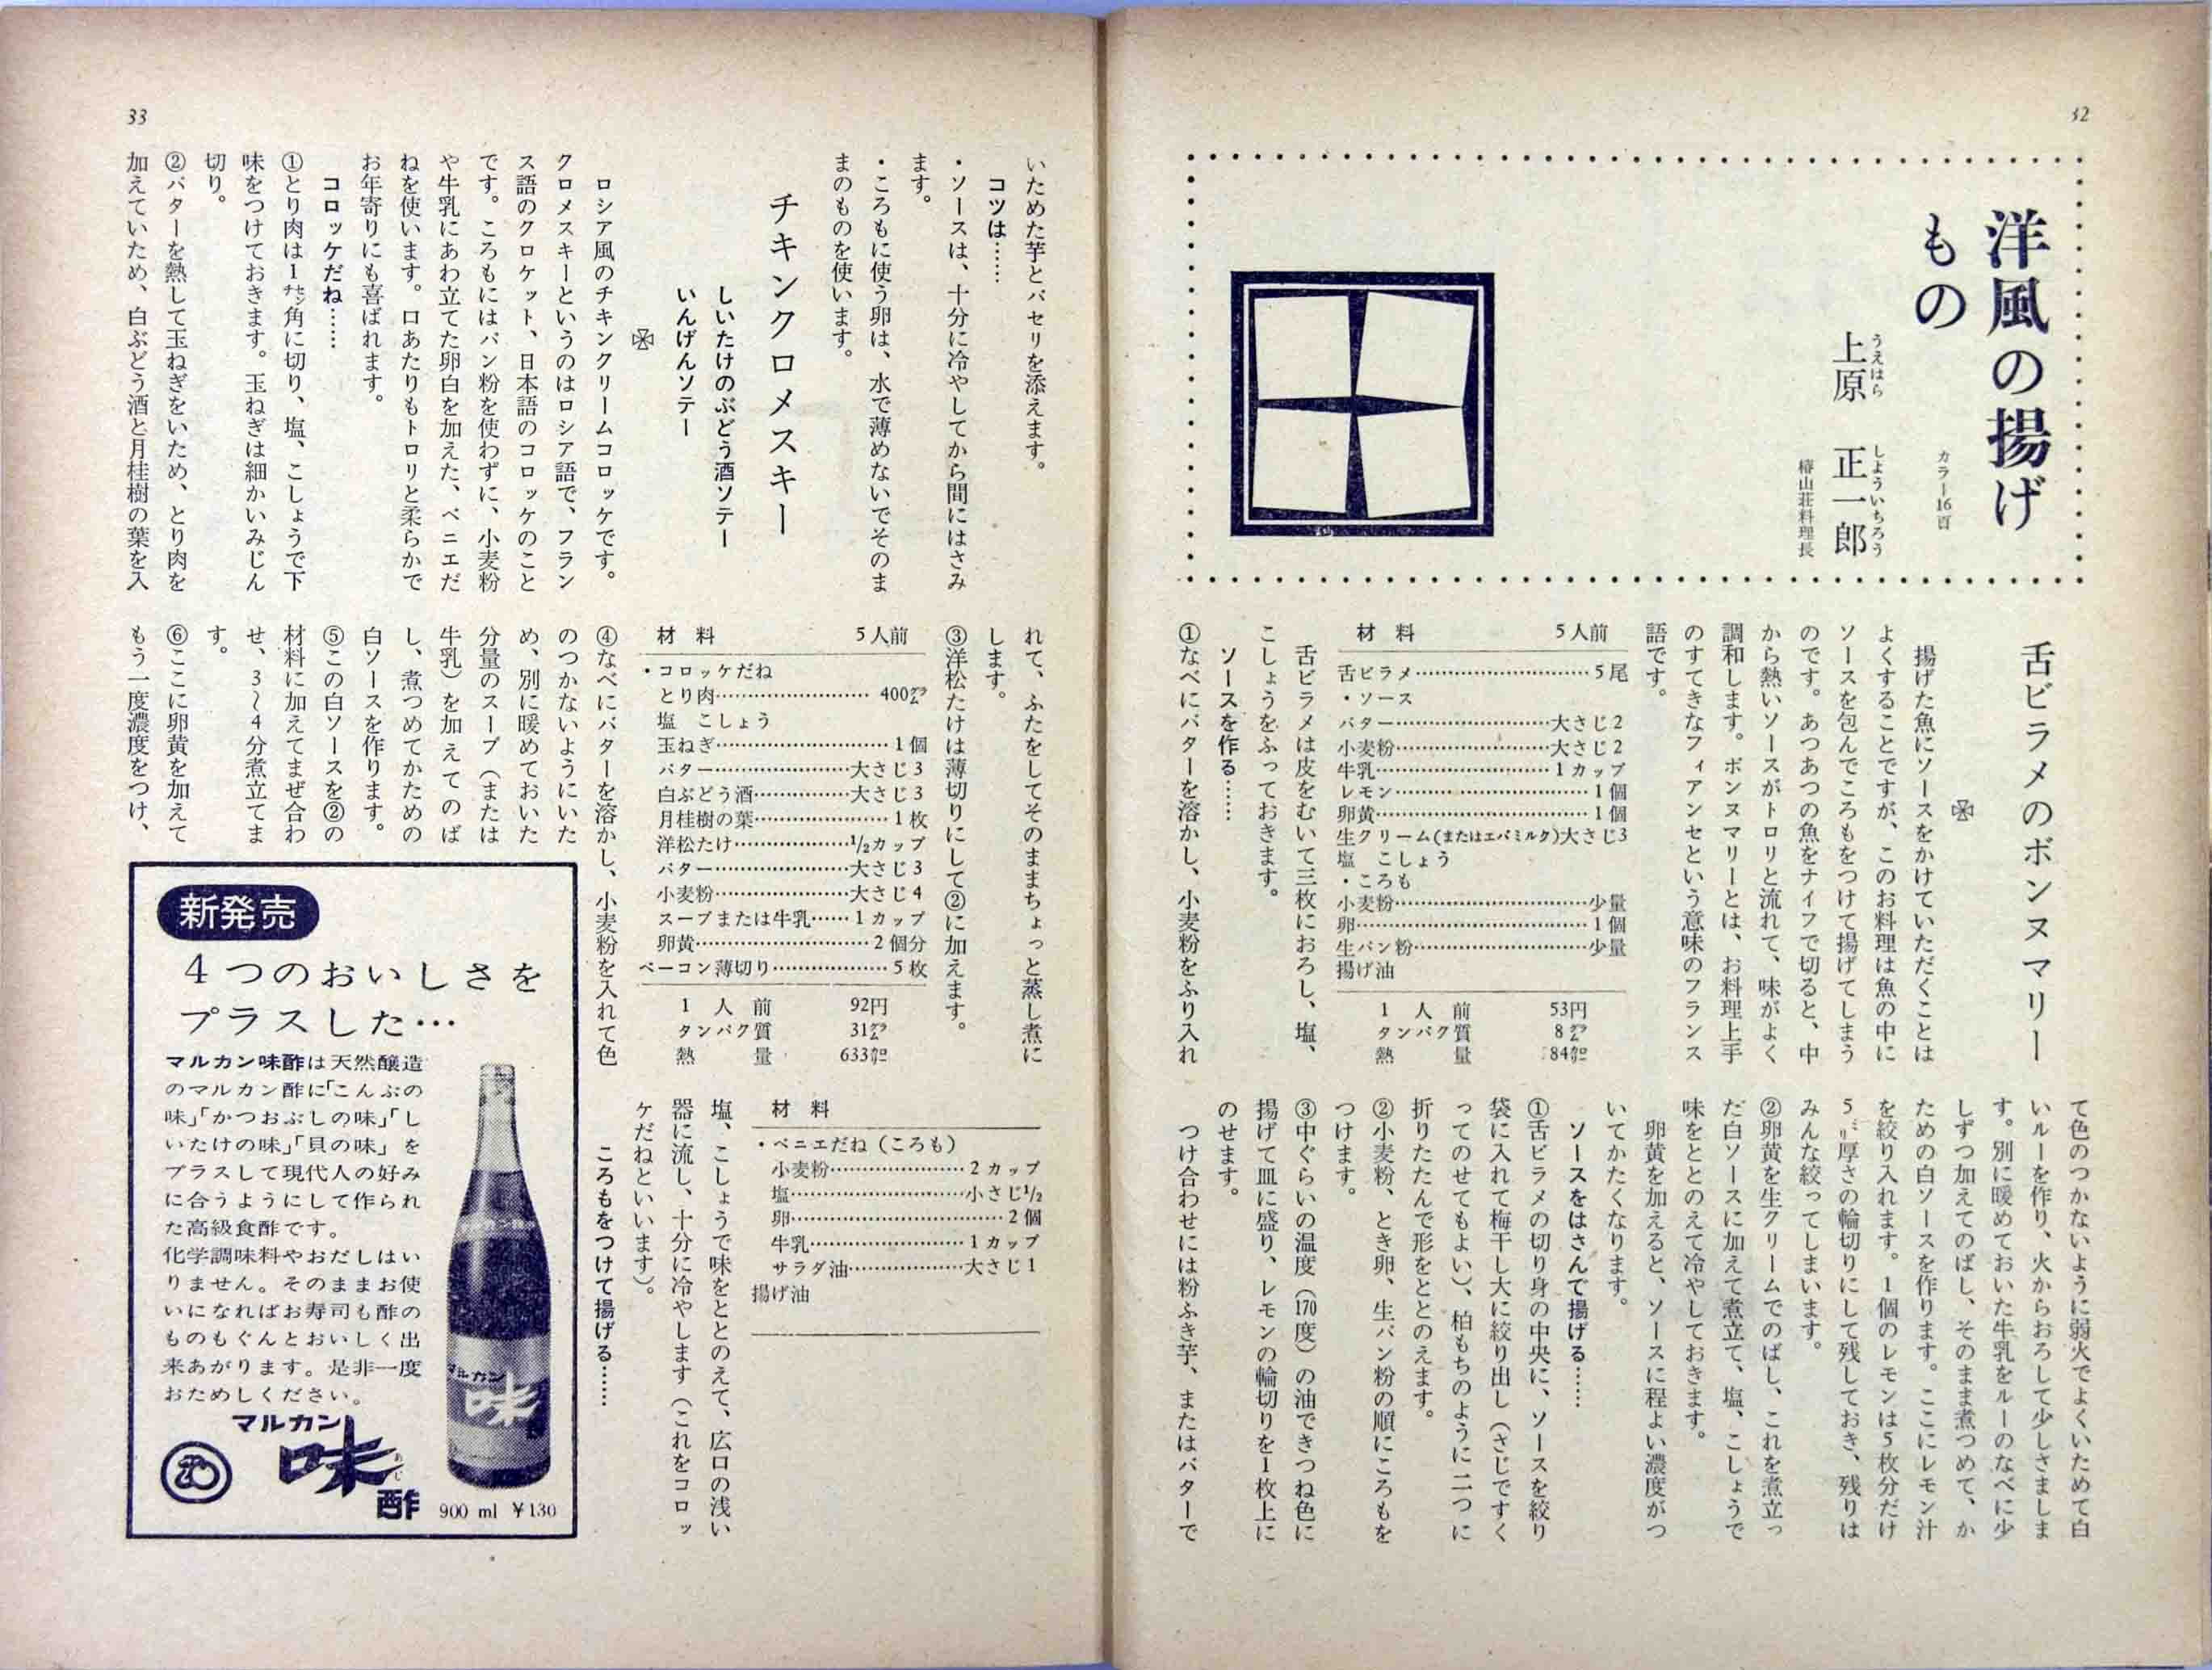 32
洋風の揚げ
もの
カラー16頁
上原　正一郎
うえはら　しょういちろう
椿山荘料理長
舌ビラメのボンヌマリー
揚げた魚にソースをかけていただくことは
よくすることですが、このお料理は魚の中に
ソースを包んでころもをつけて揚げてしまう
のです。あつあつの魚をナイフで切ると、中
から熱いソースがトロリと流れて、味がよく
調和します。ボンヌマリーとは、お料理上手
のすてきなフィアンセという意味のフランス
語です。
材　料　5人前
舌ビラメ……5尾
・ソース
バター……大さじ2
小麦粉……大さじ2
牛乳……1カップ
レモン……1個
卵黄……1個
生クリーム(またはエバミルク)大さじ3
塩　こしょう
・ころも
小麦粉……少量
卵……1個
生パン粉……少量
揚げ油
1　人　前　53円
タンパク質　8グラム
熱　量　84カロリー
舌ビラメは皮をむいて三枚におろし、塩、
こしょうをふっておきます。
ソースを作る……
①なべにバターを溶かし、小麦粉をふり入れ
て色のつかないように弱火でよくいためて白
いルーを作り、火からおろして少しさましま
す。別に暖めておいた牛乳をルーのなべに少
しずつ加えてのばし、そのまま煮つめて、か
ための白ソースを作ります。ここにレモン汁
を絞り入れます。1個のレモンは5枚分だけ
5ミリ厚さの輪切りにして残しておき、残りは
みんな絞ってしまいます。
②卵黄を生クリームでのばし、これを煮立っ
だ白ソースに加えて煮立て、塩、こしょうで
味をととのえて冷やしておきます。
卵黄を加えると、ソースに程よい濃度がつ
いてかたくなります。
ソースをはさんで揚げる……
①舌ビラメの切り身の中央に、ソースを絞り
袋に入れて梅干し大に絞り出し（さじですく
ってのせてもよい）、柏もちのように二つに
折りたたんで形をととのえます。
②小麦粉、とき卵、生パン粉の順にころもを
つけます。
③中ぐらいの温度（170度）の油できつね色に
揚げて皿に盛り、レモンの輪切りを1枚上に
のせます。
つけ合わせには粉ふき芋、またはバターで
33
いためた芋とパセリを添えます。
コツは……
・ソースは、十分に冷やしてから間にはさみ
ます。
・ころもに使う卵は、水で薄めないでそのま
まのものを使います。
チキンクロメスキー
しいたけのぶどう酒ソテー
いんげんソテー
ロシア風のチキンクリームコロッケです。
クロメスキーというのはロシア語で、フラン
ス語のクロケット、日本語のコロッケのこと
です。ころもにはパン粉を使わずに、小麦粉
や牛乳にあわ立てた卵白を加えた、ベニエだ
ねを使います。口あたりもトロリと柔らかで
お年寄りにも喜ばれます。
コロッケだね……
①とり肉は1センチ角に切り、塩、こしょうで下
味をつけておきます。玉ねぎは細かいみじん
切り。
②バターを熱して玉ねぎをいため、とり肉を
加えていため、白ぶどう酒と月桂樹の葉を入
れて、ふたをしてそのままちょっと蒸し煮に
します。
③洋松たけは薄切りにして②に加えます。
材　料　5人前
・コロッケだね
とり肉……400グラム
塩　こしょう
玉ねぎ……1個
バター……大さじ3
白ぶどう酒……大さじ3
月桂樹の葉……1枚
洋松たけ……1/2カップ
バター……大さじ3
小麦粉……大さじ4
スープまたは牛乳……1カップ
卵黄……2個分
ベーコン薄切り……5枚
1　人　前　92円
タンパク質　31グラム
熱　量　633カロリー
④なべにバターを溶かし、小麦粉を入れて色
のつかないようにいた
め、別に暖めておいた
分量のスープ（または
牛乳）を加えてのば
し、煮つめてかための
白ソースを作ります。
⑤この白ソースを②の
材料に加えてまぜ合わ
せ、3〜4分煮立てま
す。
⑥ここに卵黄を加えて
もう一度濃度をつけ、
材　料
・ベニエだね（ころも）
小麦粉……2カップ
塩……小さじ1/2
卵……2個
牛乳……1カップ
サラダ油……大さじ1
揚げ油
塩、こしょうで味をととのえて、広口の浅い
器に流し、十分に冷やします（これをコロッ
ケだねといいます）。
ころもをつけて揚げる……
新発売
4つのおいしさを
プラスした…
マルカン味酢は天然醸造
のマルカン酢に「こんぶの
味」「かつおぶしの味」「し
いたけの味」「貝の味」を
プラスして現代人の好み
に合うようにして作られ
た高級食酢です。
化学調味料やおだしはい
りません。そのままお使
いになればお寿司も酢の
ものもぐんとおいしく出
来あがります。是非一度
おためしください。
マルカン
味
マルカン
味酢
あじ
900 ml ￥130